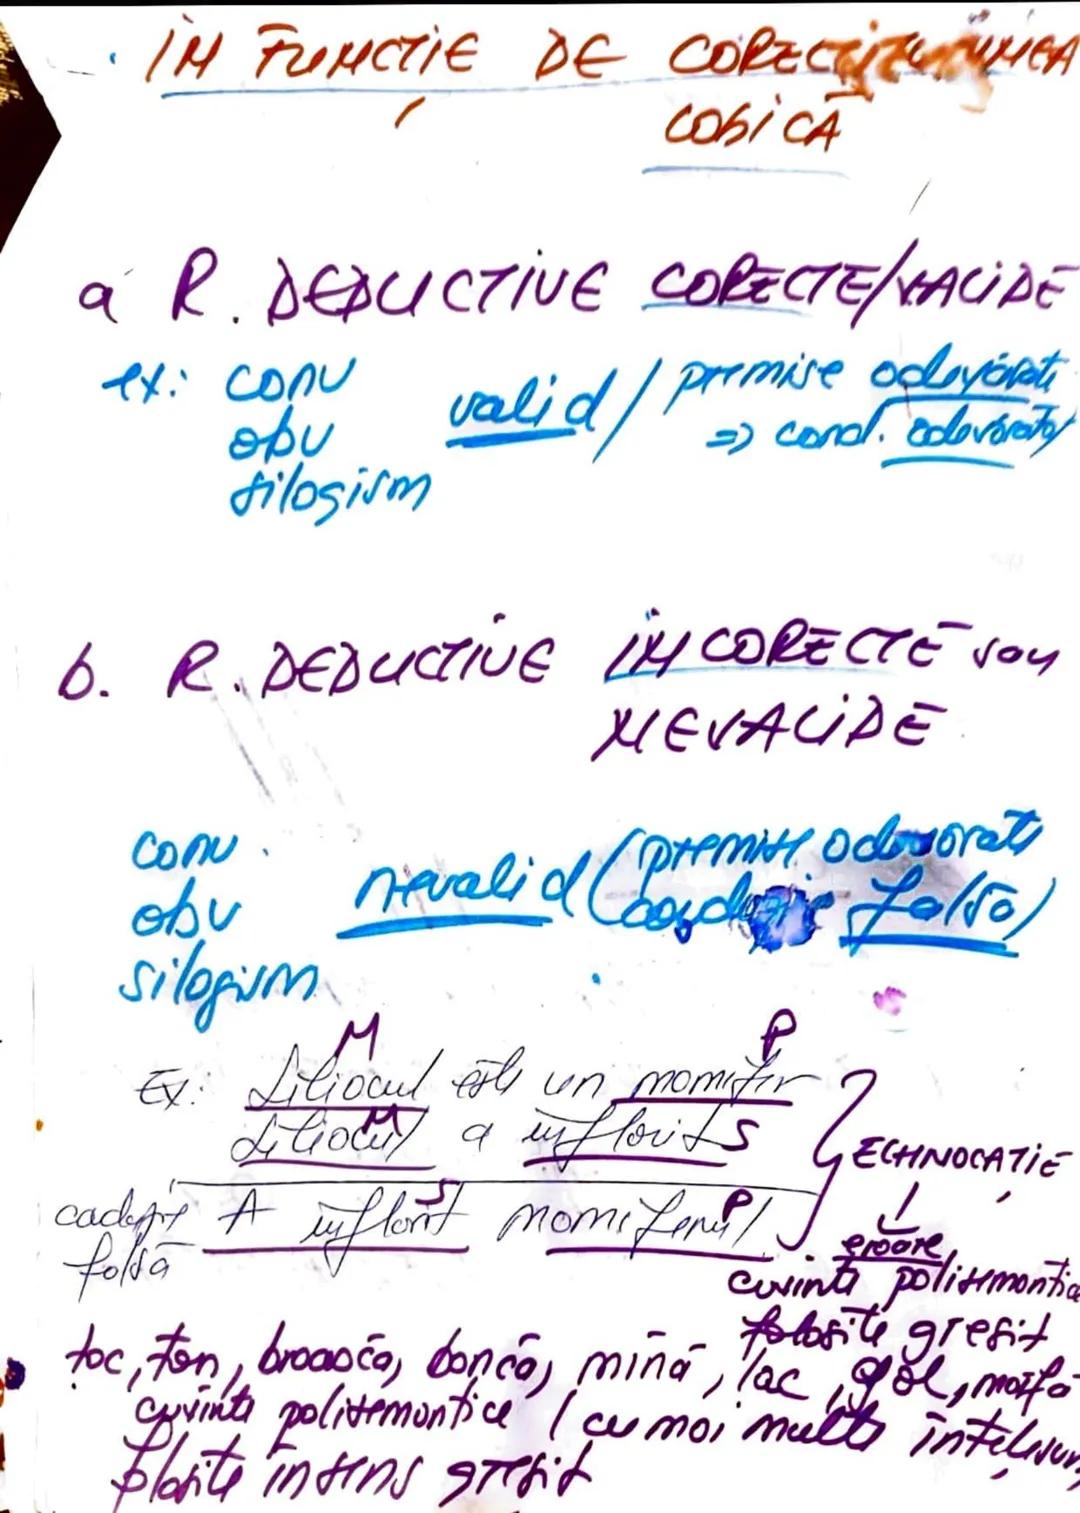 IN FUNCȚIE DE CORECTITUDINEA
LOGICĂ
a R. DEDUCTIVE CORECTE/VALIDE
ex: conv
obv
silogism
valid / premise adevărate
=> concl. adevărată)
b. R. DEDUCTIVE INCORECTE sau
NEVALIDE
conv.
obv
silogism
nevalid (premise adevarate
concluzie falsă)
M P
Ex: Liliacul este un mamifer
M
Liliacul a înflorit S
S P
concluzie A înflorit mamiferul
falsă
ECHIVOCAȚIE
eroare,
cuvinte polisemantice
folosite greșit
toc, ton, broasca, bancă, mină, lac, gol, masă
cuvinte polisemantice / cu mai multe înțelesuri,
folosite în sens greșit